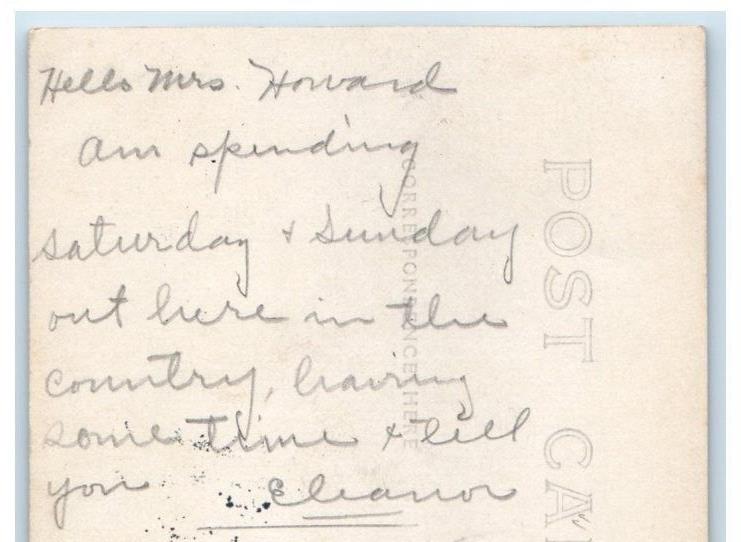 Hello Mrs. Howard
Am spending
Saturday & Sunday
out here in the
country, having
some time & tell
you Eleanor
CORRESPONDENCE HERE
POST CA